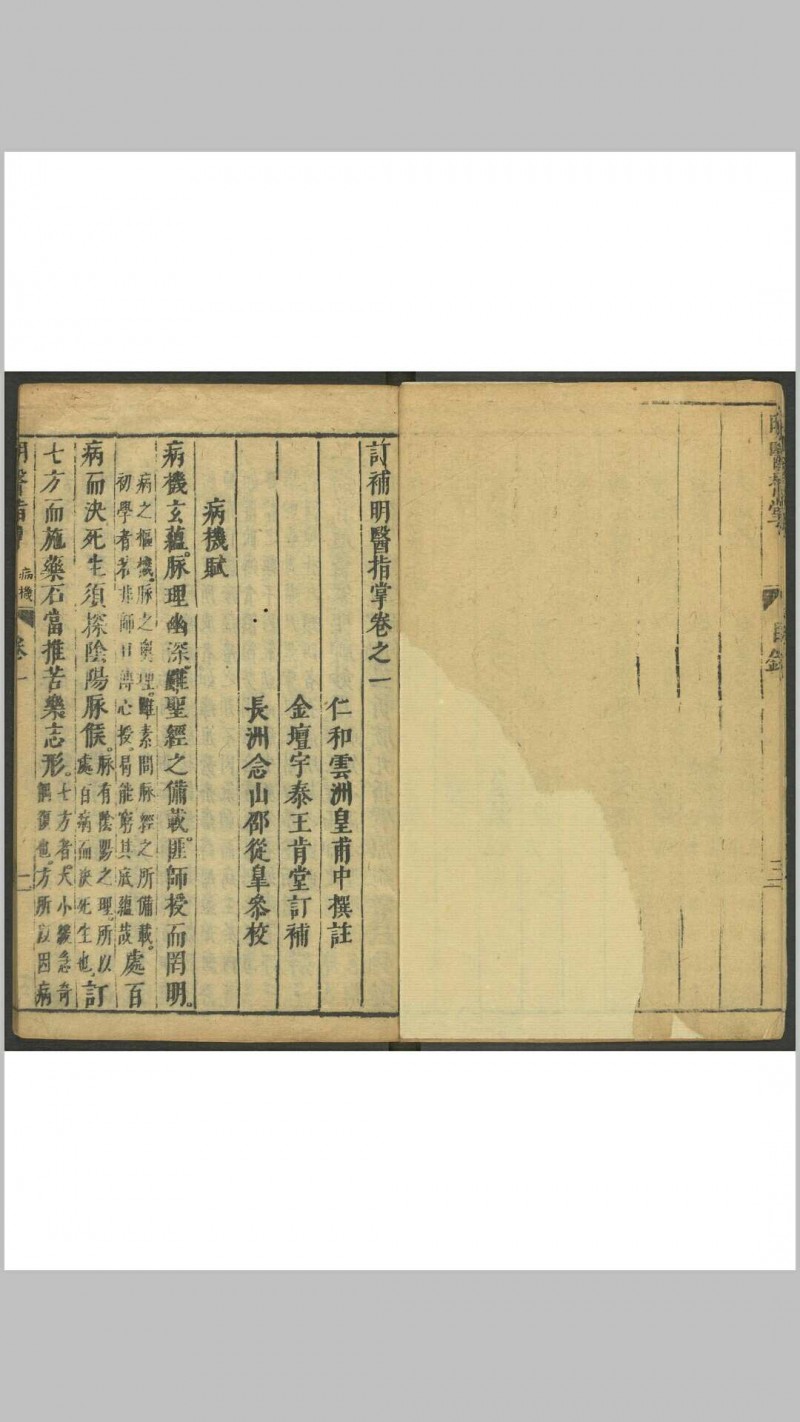 明醫指掌
目錄
三
訂補明醫指掌卷之一
仁和雲洲皇甫中撰註
金壇宇泰王肯堂訂補
長洲念山邵從皐參校
病機賦
病機玄蘊。脉理幽深。雖聖經之備載。匪師授而罔明。
病之樞機。脉之奧理。雖素問脉經之所備載。
初學者若非師口傳心授。焉能窮其底蘊哉
處百
病而決死生須探陰陽脉候。
脉有陰陽之理。所以
處百病而決死生也。
訂
七方而施藥石當推苦樂志形。
七方者大小緩急奇
偶復也。方所以因病
明醫指掌
病機
卷一
一